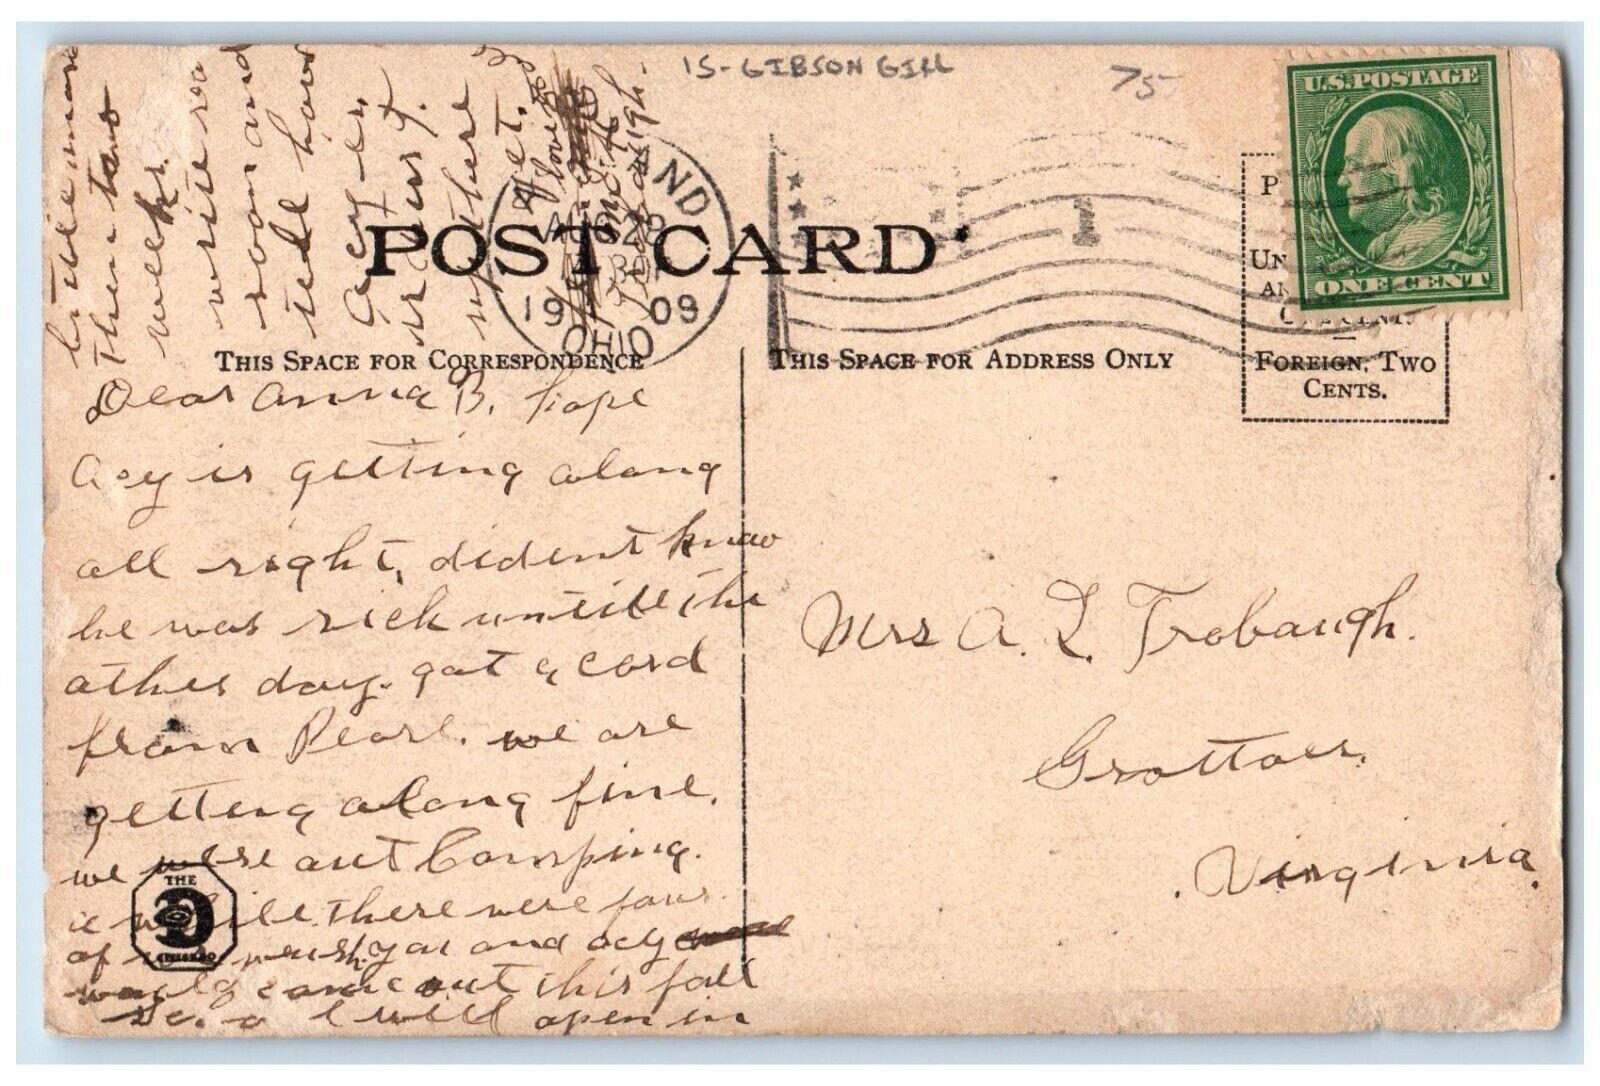 15-GIBSON GILL
75-
U.S. POSTAGE
ONE CENT
POST CARD
AUG 28
19 09
OHIO
THIS SPACE FOR CORRESPONDENCE
THIS SPACE FOR ADDRESS ONLY
FOREIGN, TWO
CENTS.
Dear Anna B. hope
Acy is getting along
all right, dident know
he was sick untill the
other day. got a card
from Pearl. we are
getting along fine.
we were out Camping.
a while there were four
of us. wish you and acy
would come out this fall
School will open in
little more
then two
weeks.
write soon
and
tell how
Acy is.
up there
yet.
Mrs A. L. Trobaugh.
Grottoes,
Virginia.
THE
CHICAGO